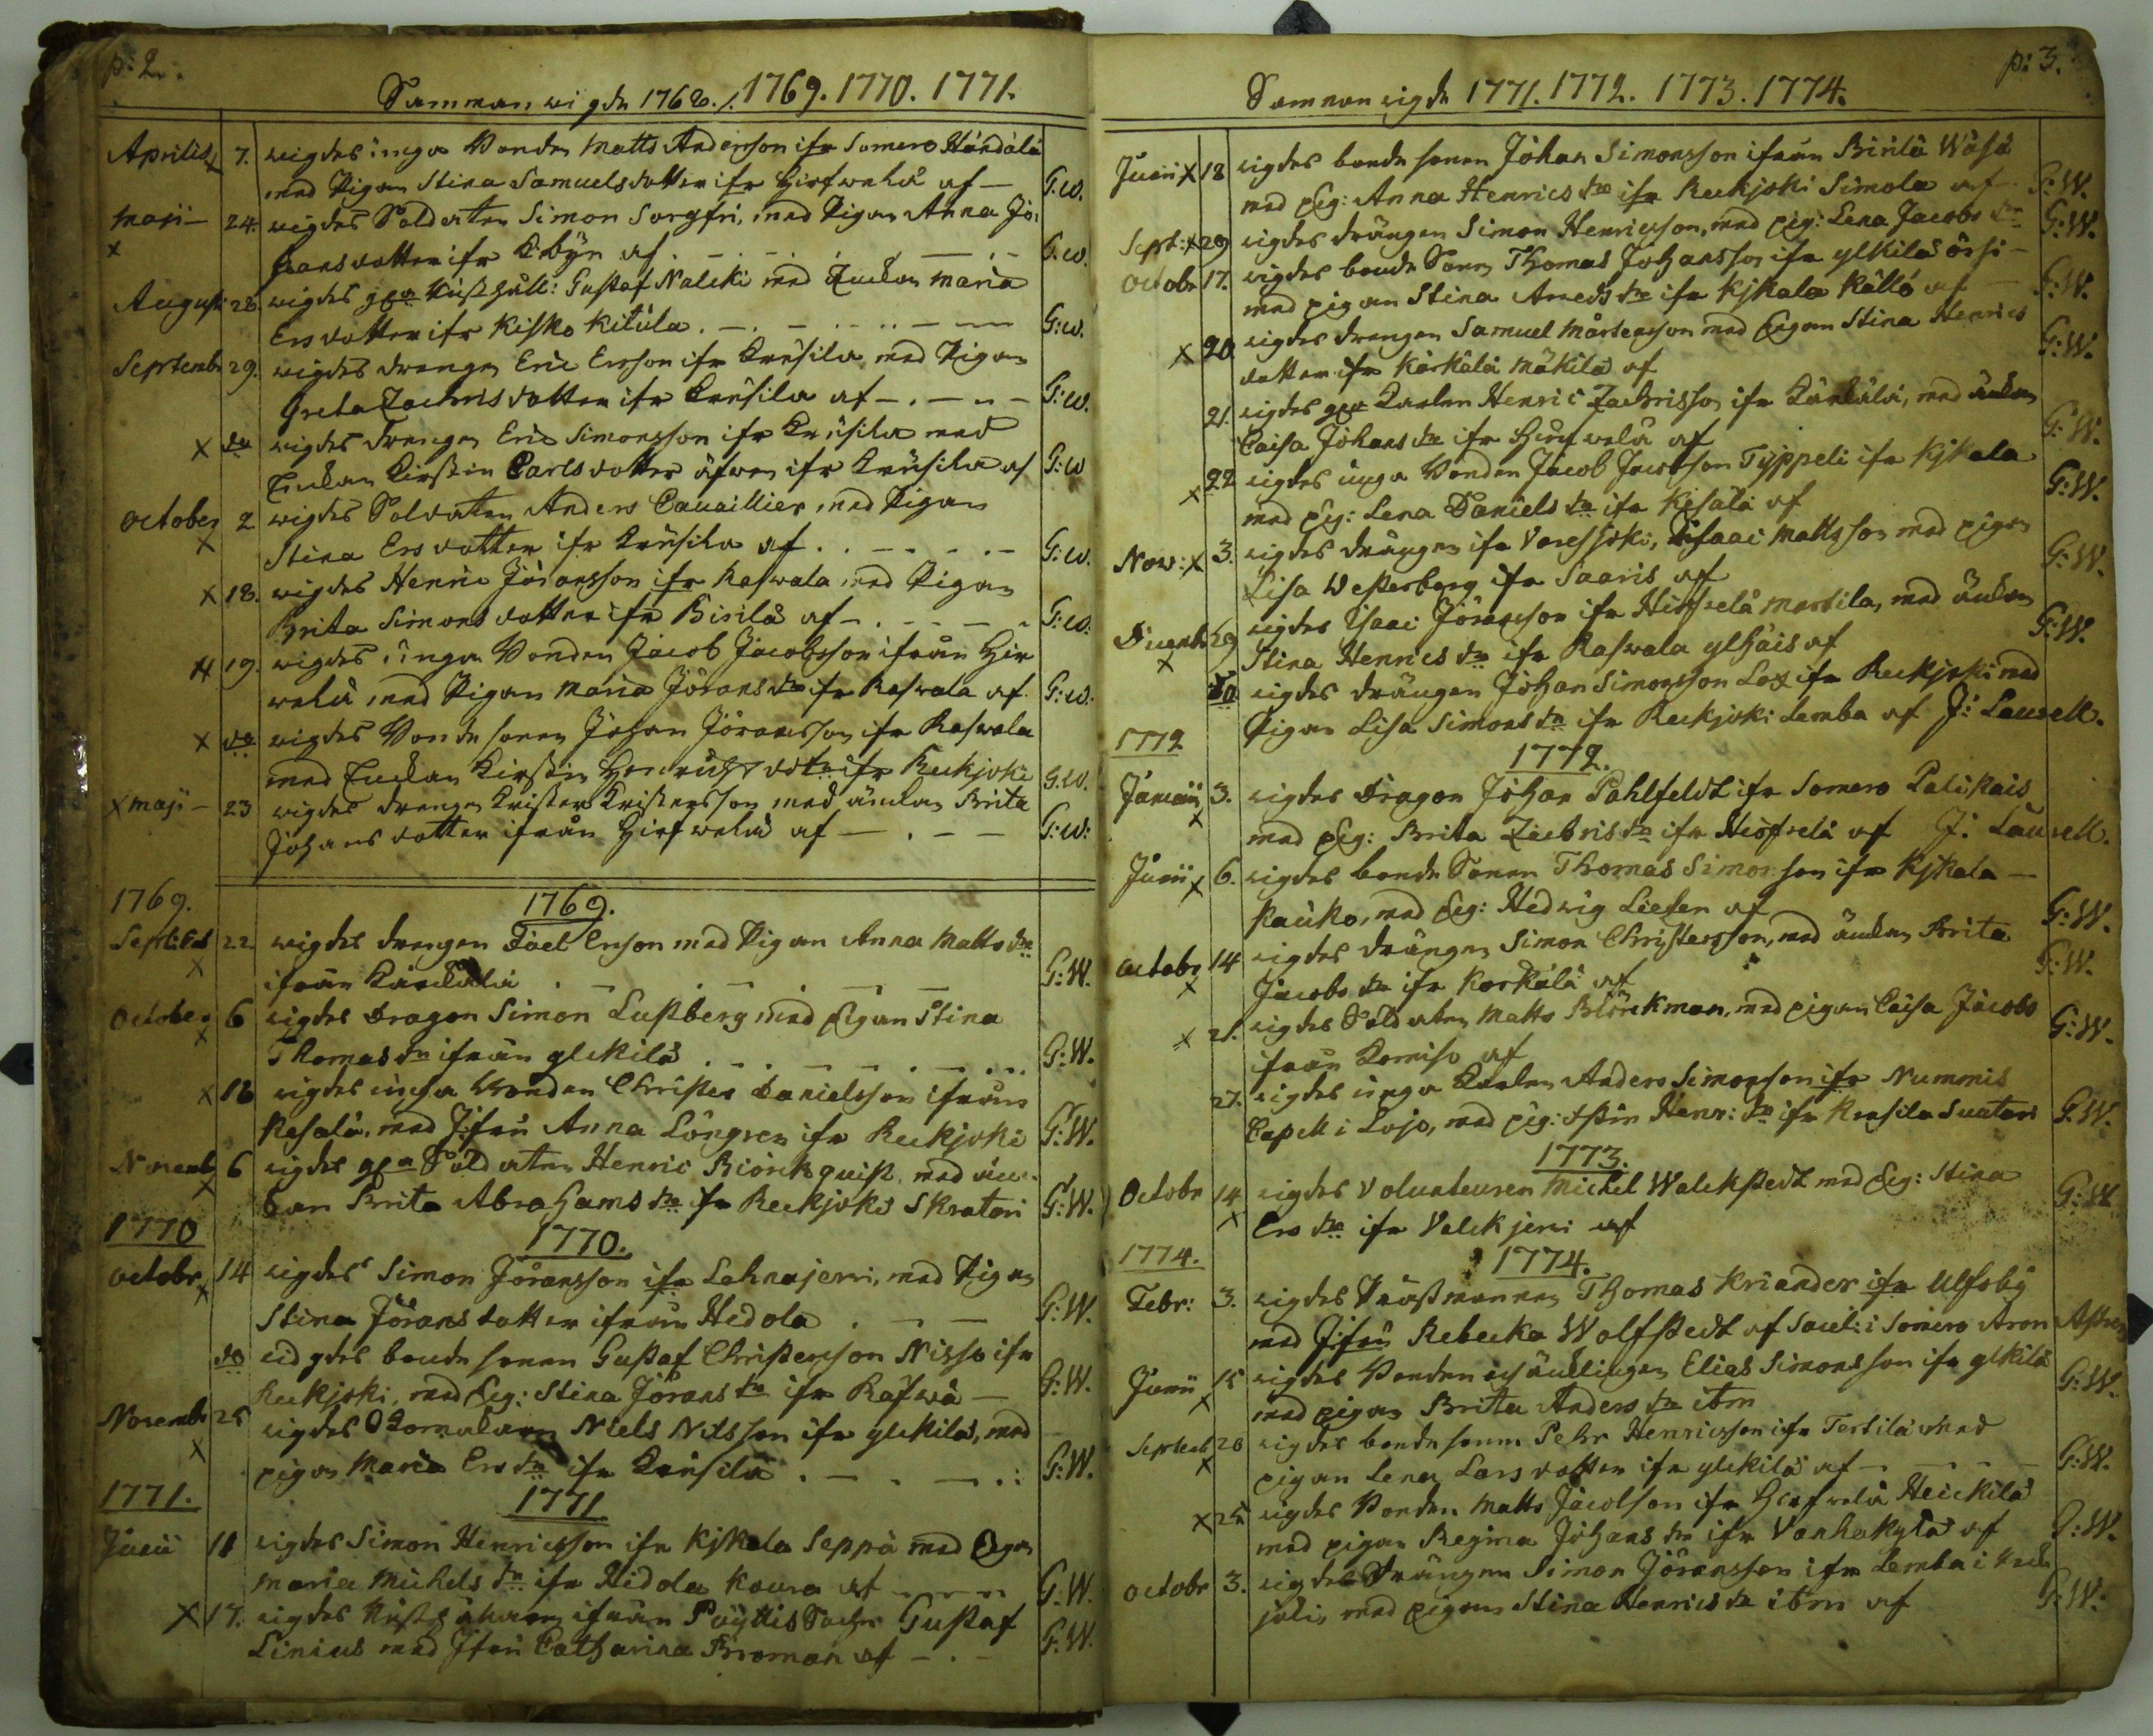 p: 2.
Sammanwigde 1768. 1769. 1770. 1771.
Aprilis 7. wigdes unga Bonden Matts Andersson ifr Somero Härdälä
med Pigan Stina Samuelsdotter ifr Hirfwelä af — G:W.
Maji 24. wigdes Soldaten Simon Sorgfri, med Pigan Anna Jö-
x ransdotter ifr af G:W.
August 28. wigdes Gustaf Nalcki med Enckan Maria
Ersdotter ifr Kisko Kitula G:W.
Septembr 29. wigdes drengen Eric Ersson ifr Krusila med Pigan
Greta Zachrisdotter ifr Krusila af — G:W.
x do wigdes drengen Eric Simonsson ifr Krusila med
Enckan Kirstin Carlsdotter äfwen ifr Krusila af G:W
October 2 wigdes Soldaten Anders Cavaillier, med Pigan
x Stina Ersdotter ifr Krusila af G:W.
x 18. wigdes Henric Jöransson ifr Raswala med Pigan
Brita Simonsdotter ifr Birilä af — G:W.
x 19. wigdes unga Bonden Jacob Jacobsson ifrån Hir
welä med Pigan Maria Jörans dr ifr Raswala af G:W.
x do wigdes Bonde sonen Johan Jöransson ifr Raswala
med Enckan Kirstin ifr Reckjoki G:W.
x Maji 23 wigdes drengen Krister Kristersson med änckan Brita
Johansdotter ifrån Hirfwelä af — G:W:
1769. 1769.
Sept: 22 wigdes drengen Joel Erson med Pigan Anna Matts dr
x ifrån Kärckälä G:W.
October 6 wigdes Dragon Simon Lustberg med Pigan Stina
x Thomas dr ifrån ylckilä G:W.
x 18 wigdes unga Bonden Christer Danielsson ifrån
Kesälä, med Jifru Anna Löngren ifr Reckjoki G:W.
Novemb 6 wigdes Soldaten Henric Biörckquist, med än-
x kan Brita Abrahams dr ifr Reckjoki Skratari G:W.
1770 1770.
Octobr 14 wigdes Simon Jöransson ifr Lehnajerwi, med Pigan
x Stina Jöransdotter ifrån Hedola G:W.
do wigdes bonde sonen Gustaf Christersson Nisso ifr
Reckjoki, med Pig: Stina Jörans dr ifr Rafwä — G:W.
Novembr 25 wigdes Niels Nilsson ifr ylckilä, med
x pigan Maria Ers dr ifr Krusila G:W.
1771. 1771
Junii 11 wigdes Simon Henricsson ifr Kjkala Seppä med Pigan
Maria Michels dr ifr Hidola Koura af G:W.
x 17. wigdes ifrån Pöyttis Sochn Gustaf
Linius med Jfru Catharina Broman af — G:W.
p: 3.
Sammanwigde 1771. 1772. 1773. 1774.
Junii x 18 wigdes bonde sonen Johan Simonsson ifrån Birilä Wäsä
med pig: Anna Henrics dr ifr Reckjoki Simola af G:W.
Sept: x 29 wigdes drängen Simon Henricsson, med pig: Lena Jacobs dr G:W.
Octobr 17. wigdes bonde Sonen Thomas Johansson ifr ylkilä
med pigan Stina dr ifr Kjkala Källö af G:W.
x 20 wigdes drengen Samuel Mårtensson med Pigan Stina Henrics
dotter ifr Kärkälä Mäkilä af G:W.
21. wigdes Karlen Henric Zachrisson ifr Kärkälä, med änckan
Caisa Johans dr ifr Hirfwelä af G:W.
x 22 wigdes unga Bonden Jacob Jacobsson Typpeli ifr Kjkala
med pig: Lena Daniels dr ifr Kesälä af G:W.
Now: x 3. wigdes drängen ifr Varesjoki, Isaac Mattsson med pigan
Lisa Westerberg ifr Saaris af G:W.
Decemb 29 wigdes Isaac Jöransson ifr Hirfwelä Martila, med änckan
x Stina Henrics dr ifr Raswala ylhäis af G:W.
30 wigdes drängen Johan Simonsson Lax ifr Reckjoki med
Pigan Lisa Simons dr ifr Reckjoki Lemba af J: Laurell.
1772 1772.
Januarii 3. wigdes Dragon Johan Pahlfeldt ifr Somero Palikais
x med Pig: Brita Zachris dr ifr Hirfwelä af J: Laurell.
Junii x 6. wigdes bonde Sonen Thomas Simonsson ifr Kjkala —
Kauko, med Pig: Hedwig Liesen af G:W.
Octobr 14 wigdes drängen Simon Christersson, med änckan Brita
x Jacobs dr ifr Karkälä af G:W.
x 21. wigdes Soldaten Matts Biörckman, med pigan Caisa Jacobs
ifrån Komiso af G:W.
27. wigdes unga Karlen Anders Simonsson ifr Nummis
Capell i Lojo, med pig: Henr: dr ifr Krusila Suutari G:W.
1773.
Octobr 14 wigdes Volunteuren Michel Walckstedt med Pig: Stina
x Ers dr ifr Valckjerwi af G:W
1774. 1774.
Febr: 3. wigdes Prästmannen Thomas Kriander ifr Ulfsby
med Jifru Rebecka Wolfstedt af Sacel: i Somero Aron
Junii 15 wigdes Bonden och änklingen Elias Simonsson ifr ylkilä
x med pigan Brita Anders dr ibm G:W.
Septemb 20 wigdes bonde sonen Pehr Henricsson ifr Tertilä med
x pigan Lena Larsdotter ifr ylckilä af G:W.
x 25 wigdes Bonden Matts Jacobson ifr Hirfwelä Heickilä
med pigan Regina Johans dr ifr Vanhakylä af G:W.
Octobr 3. wigdes Drängen Simon Jöransson ifr Lemba i Reck
joki, med pigan Stina Henrics dr ibm af G:W.